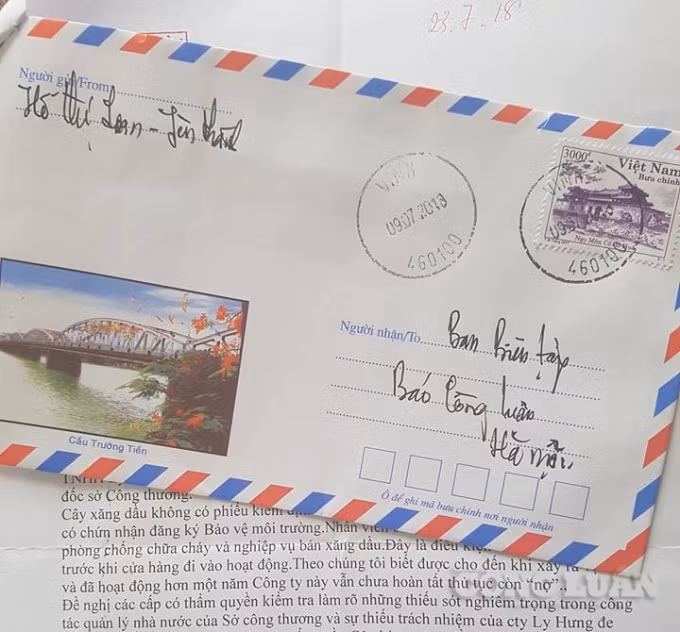 23.7.18
Người gửi/From
Hồ Thị Lan - Tân Thành
VINH
09.07.2018
460100
3000đ
Việt Nam
Bưu chính
Ngọ Môn Cố đô Huế
VINH
09.07
460100
Người nhận/To
Ban biên tập
Báo Công luận
Hà Nội
Cầu Trường Tiền
Ô để ghi mã bưu chính nơi người nhận
TNHH
đốc sở Công thương.
Cây xăng dầu không có phiếu kiểm
có chứn nhận đăng ký Bảo vệ môi trường.Nhân viên
phòng chống chữa cháy và nghiệp vụ bán xăng dầu.Đây là điều
trước khi cửa hàng đi vào hoạt động.Theo chúng tôi biết được cho đến khi xảy ra
và đã hoạt động hơn một năm Công ty này vẫn chưa hoàn tất thủ tục còn "nợ"..
Đề nghị các cấp có thẩm quyền kiểm tra làm rõ những thiếu sót nghiêm trọng trong công
tác quản lý nhà nước của Sở công thương và sự thiếu trách nhiệm của cty Ly Hưng đe
CÔNG LUẬN